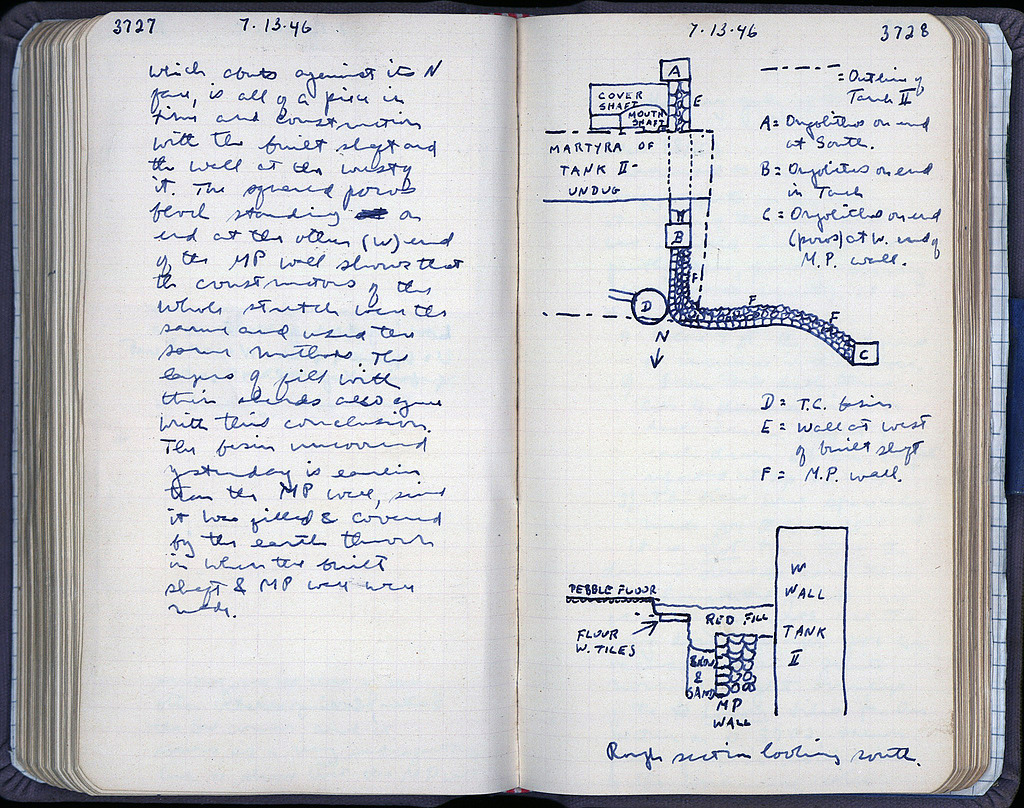 3727
7.13.46
which abuts against its N
face, is all of a piece in
time and construction
with the built shaft and
the wall at the west of
it. The squared poros
block standing on
end at the other (W) end
of the MP wall shows that
the constructors of the
whole stretch were the
same and used the
same methods. The
layers of fill with
their sherds also agree
with this conclusion.
The basin uncovered
yesterday is earlier
than the MP wall, since
it was filled & covered
by the earth thrown
in when the built
shaft & MP wall were
made.
7.13.46
3728
A
COVER
SHAFT
MOUTH
SHAFT
E
MARTYRA OF
TANK II-
UNDUG
B
F
D
F
F
C
N
= Outline of
Tank II
A = Orgolithos on end
at South.
B = Orgolithos on end
in Tank
C = Orgolithos on end
(poros) at W. end of
M.P. wall.
D = T.C. basin
E = Wall at west
of built shaft
F = M.P. wall.
PEBBLE FLOOR
FLOOR
W. TILES
RED FILL
&
SAND
MP
WALL
W
WALL
TANK
II
Rough section looking south.